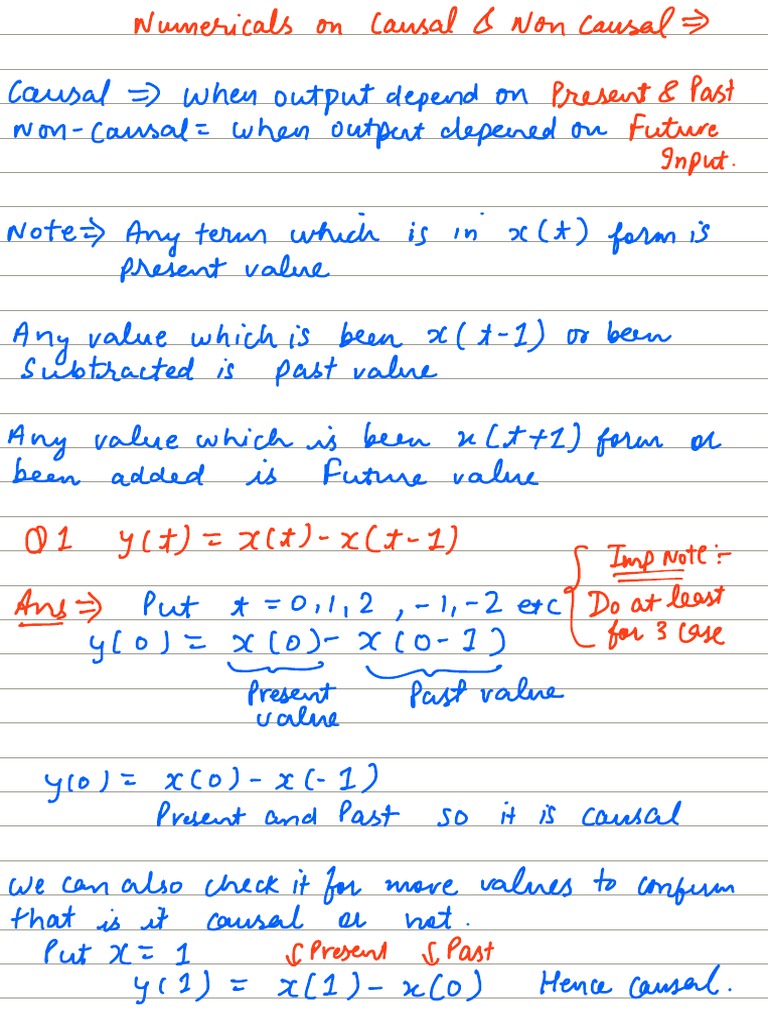 Numericals on Causal & Non Causal ⇒
Causal ⇒ When output depend on Present & Past
Non-Causal = when output depened on Future
Input.
Note ⇒ Any term which is in x(t) form is
Present value
Any value which is been x(t-1) or been
Subtracted is past value
Any value which is been x(t+1) form or
been added is Future value
Q1 y(t) = x(t) - x(t-1)
Ans ⇒ Put t = 0, 1, 2, -1, -2 etc
y(0) = x(0) - x(0-1)
Imp Note:-
Do at least
for 3 case
Present value
Past value
y(0) = x(0) - x(-1)
Present and Past so it is causal
We can also check it for more values to confirm
that is it causal or not.
Put x = 1 ↓Present ↓Past
y(1) = x(1) - x(0) Hence causal.